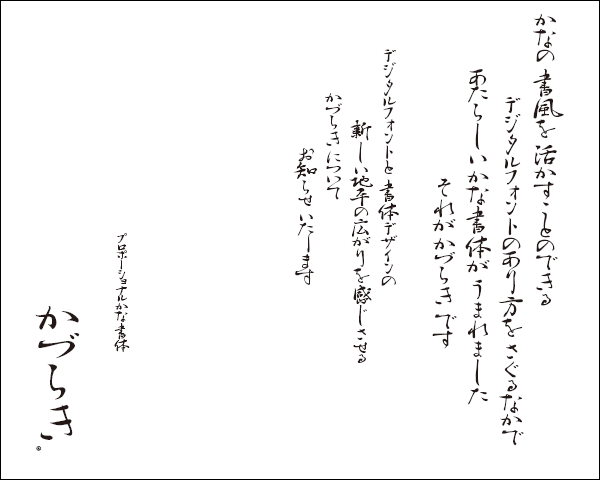 かなの書風を活かすことのできる
デジタルフォントのあり方をさぐるなかで
あたらしいかな書体がうまれました
それがかづらきです
デジタルフォントと書体デザインの
新しい地平の広がりを感じさせる
かづらきについて
お知らせいたします
プロポーショナルかな書体
かづらき®